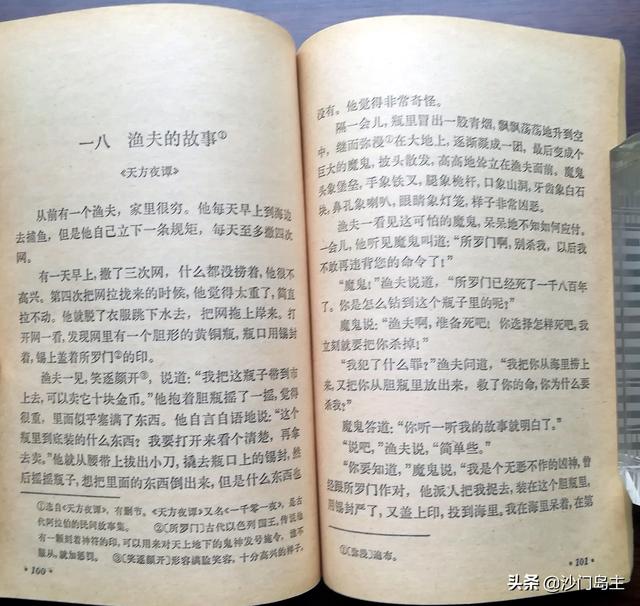 一八　渔夫的故事①
《天方夜谭》
从前有一个渔夫，家里很穷。他每天早上到海边
去捕鱼，但是他自己立下一条规矩，每天至多撒四次
网。
有一天早上，撒了三次网，什么都没捞着，他很不
高兴。第四次把网拉拢来的时候，他觉得太重了，简直
拉不动。他就脱了衣服跳下水去，把网拖上岸来。打
开网一看，发现网里有一个胆形的黄铜瓶，瓶口用锡封
着，锡上盖着所罗门②的印。
渔夫一见，笑逐颜开③，说道：“我把这瓶子带到市
上去，可以卖它十块金币。”他抱着胆瓶摇了一摇，觉得
很重，里面似乎塞满了东西。他自言自语地说：“这个
瓶里到底装的什么东西？我要打开来看个清楚，再拿
去卖。”他就从腰带上拔出小刀，撬去瓶口上的锡封，然
后摇摇瓶子，想把里面的东西倒出来，但是什么东西也
①选自《天方夜谭》，有删节。《天方夜谭》又名《一千零一夜》，是古
代阿拉伯的民间故事集。　②〔所罗门〕古代以色列国王，传说他
有一颗刻着神符的印，可以用来对天上地下的鬼神发号施令，谁不
服从，就加惩罚。　③〔笑逐颜开〕形容满脸笑容，十分高兴的样子。
·100·
没有。他觉得非常奇怪。
隔一会儿，瓶里冒出一股青烟，飘飘荡荡地升到空
中，继而弥漫①在大地上，逐渐凝成一团，最后变成个
巨大的魔鬼，披头散发，高高地耸立在渔夫面前。魔鬼
头象堡垒，手象铁叉，腿象桅杆，口象山洞，牙齿象白石
块，鼻孔象喇叭，眼睛象灯笼，样子非常凶恶。
渔夫一看见这可怕的魔鬼，呆呆地不知如何应付。
一会儿，他听见魔鬼叫道：“所罗门啊，别杀我，以后我
不敢再违背您的命令了！”
“魔鬼！”渔夫说道，“所罗门已经死了一千八百年
了。你是怎么钻到这个瓶子里的呢？”
魔鬼说：“渔夫啊，准备死吧！你选择怎样死吧，我
立刻就要把你杀掉！”
“我犯了什么罪？”渔夫问道，“我把你从海里捞上
来，又把你从胆瓶里放出来，救了你的命，你为什么要
杀我？”
魔鬼答道：“你听一听我的故事就明白了。”
“说吧，”渔夫说，“简单些。”
“你要知道，”魔鬼说，“我是个无恶不作的凶神，曾
经跟所罗门作对，他派人把我捉去，装在这个胆瓶里，
用锡封严了，又盖上印，投到海里。我在海里呆着，在第
①〔弥漫〕遍布。
·101·
头条 @沙门岛主